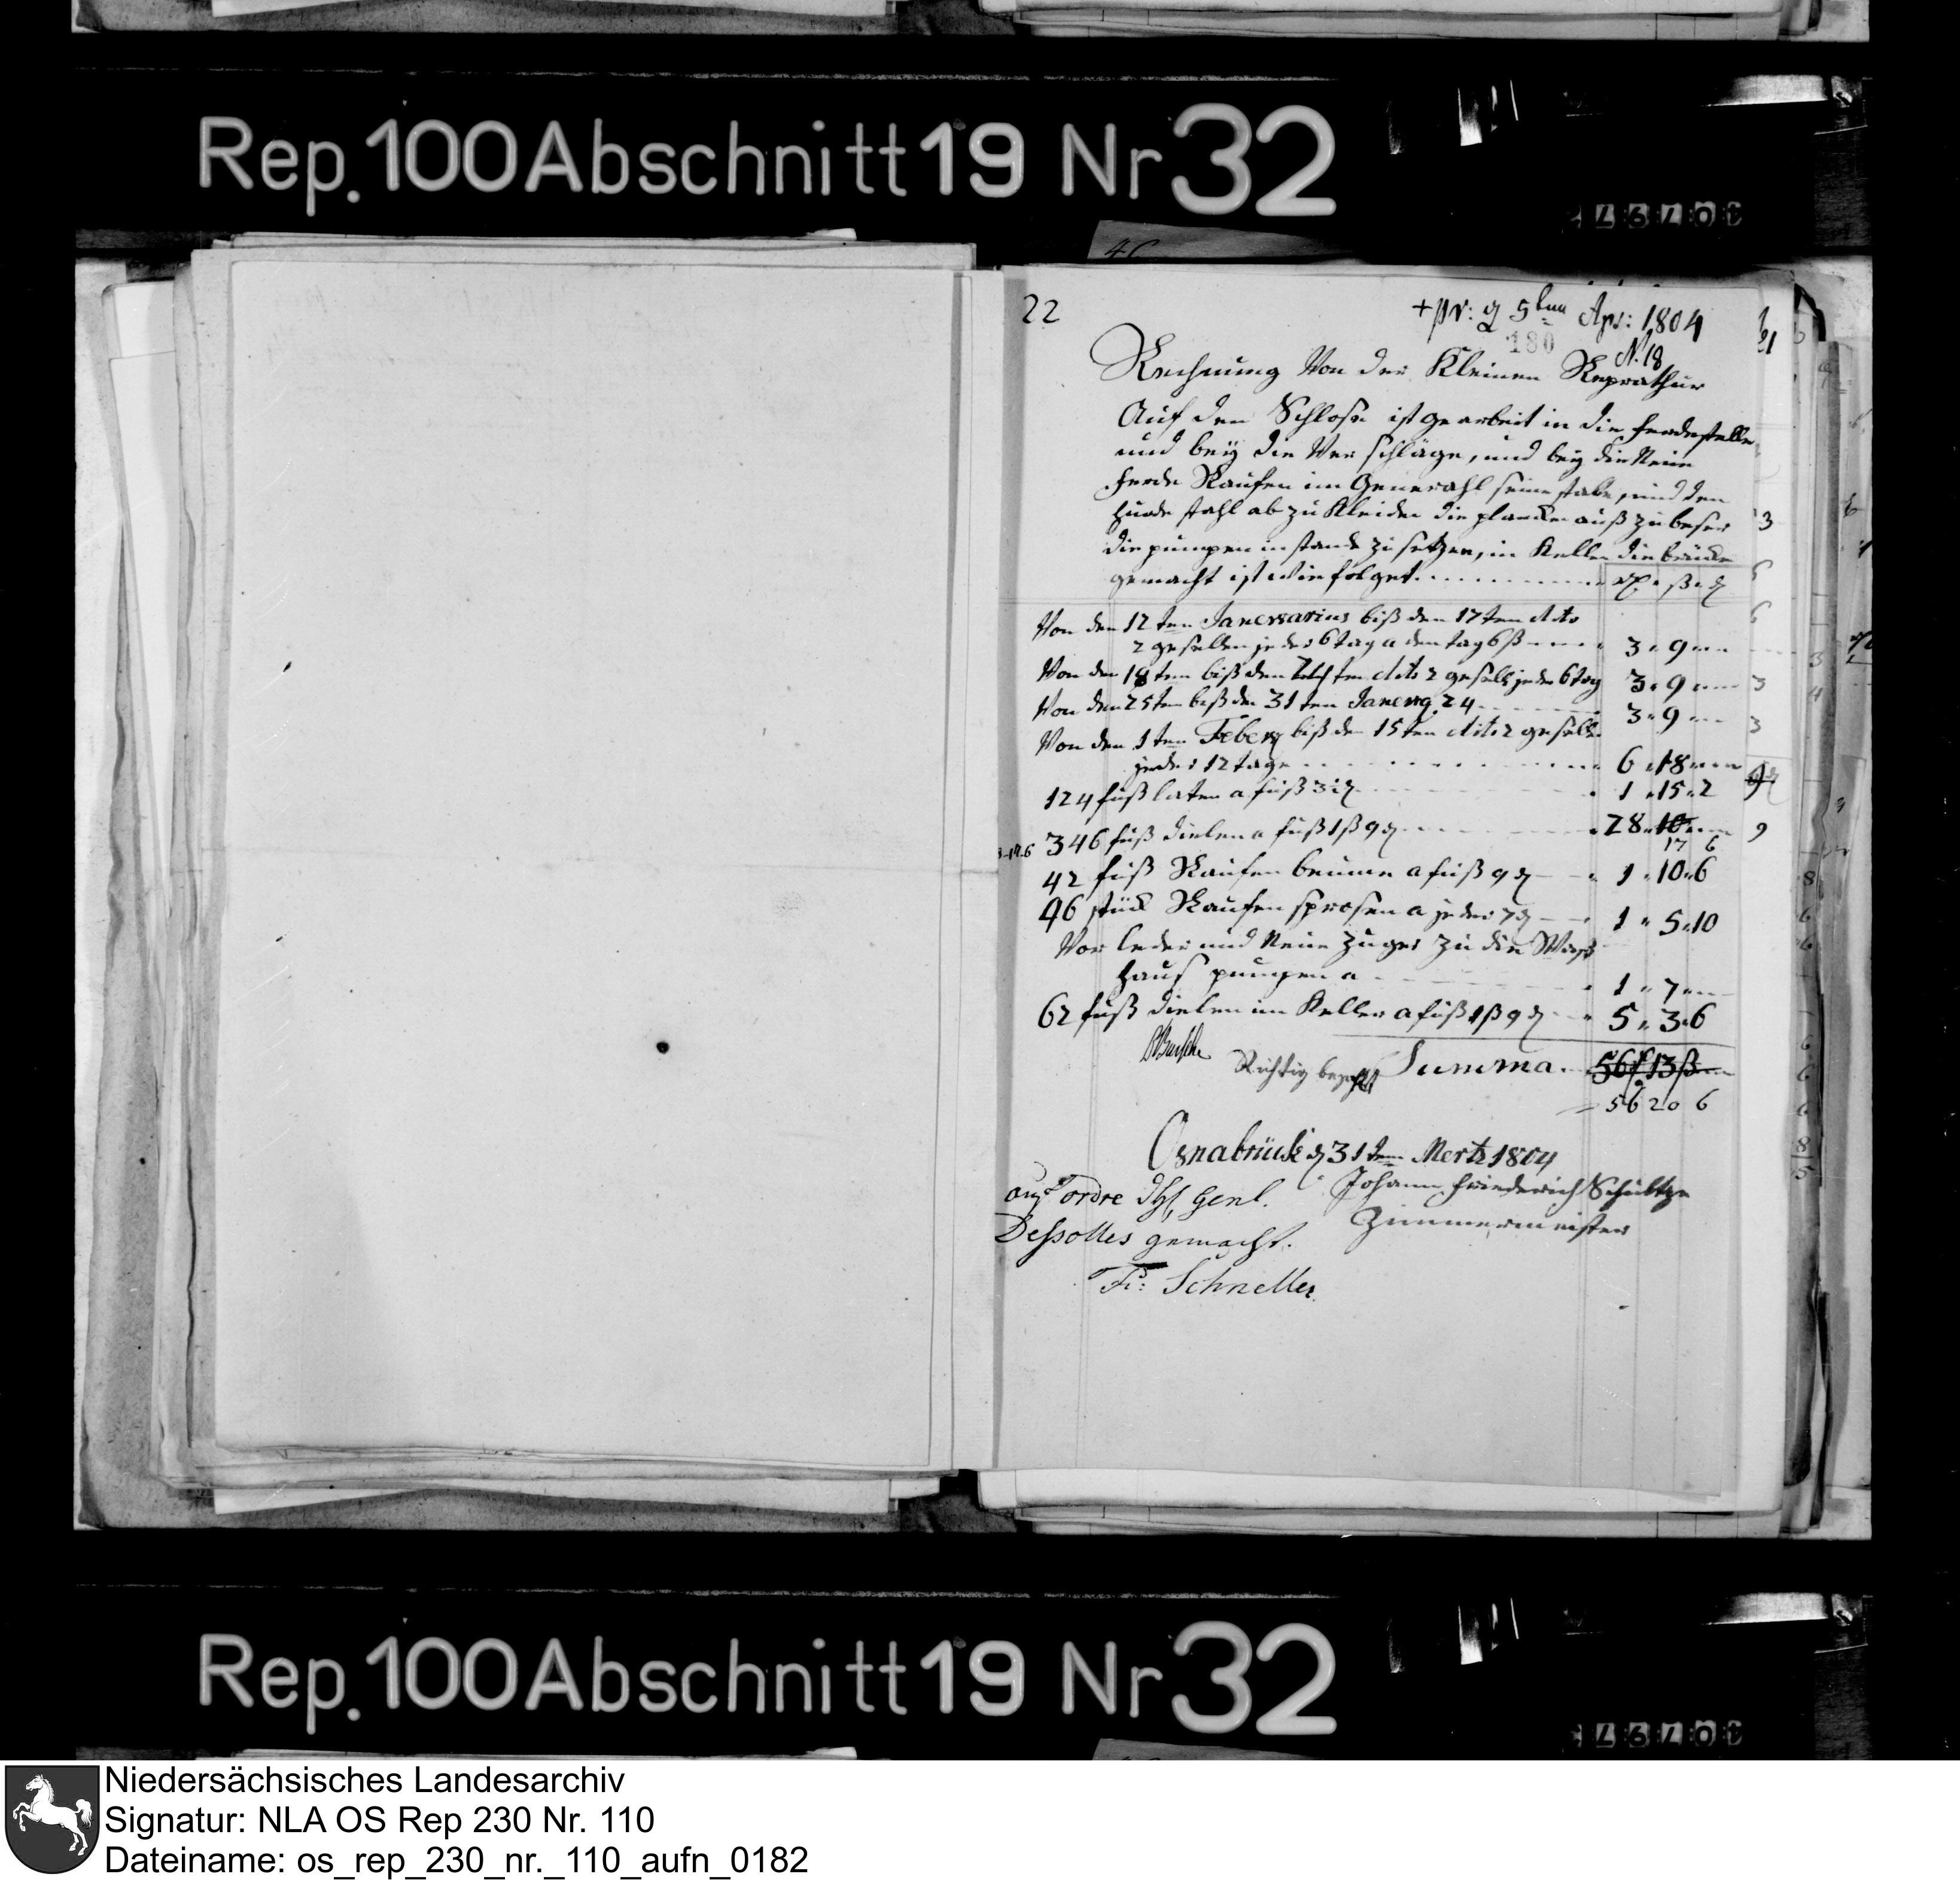 Rep. 100 Abschnitt 19 Nr 32
22
+ pr: d 5ten Apr: 1804
180
N. 18
Rechnung Von der Kleinen Reprathur
Auf den Schlosse ist gearbeit in die ferdestelle
und beÿ die Verschläge, und beÿ die Neüe
ferde Raufen im Generahl seine stabe, und den
Hunde stahl ab zu Kleiden die plancken auß zu besern
die pumpen in stande zu setzen, in Keller die brücke
gemacht ist wie folget
Von den 12ten Janewarius biß den 17ten dito
2 gesellen jeder 6 tag a den tag 6 ß 3 " 9 "
Von den 18ten biß den ten dito 2 gesell jeder 6 tag 3 " 9 "
Von den 25ten biß den 31ten Janewg. 24 3 " 9 "
Von den 1ten Feberg biß den 15ten dito 2 gesellen
jeder 12 tage 6 " 18 "
124 fuß laten a fuß 3 d 1 " 15 " 2
346 fuß dielen a fuß 1 ß 9 d 28 " 10 "
17 6
42 fuß Raufen beüme a fuß 9 d 1 " 10 " 6
46 stück Raufen sprosen a jeder 7 d 1 " 5 " 10
Vor leder und Neüe Züger zu die
Hauß pumpen a 1 " 7 "
62 fuß dielen im Keller a fuß 1 ß 9 d 5 " 3 " 6
Richtig bezahlt Summa 56 13 ß
= 56 20 6
Osnabrück d 31ten Mertz 1804
auf ordre Genl. Johann Friederich Schultze
Dessolles gemacht. Zimmermeister
Fr: Schneller
Rep. 100 Abschnitt 19 Nr 32
Niedersächsisches Landesarchiv
Signatur: NLA OS Rep 230 Nr. 110
Dateiname: os_rep_230_nr._110_aufn_0182